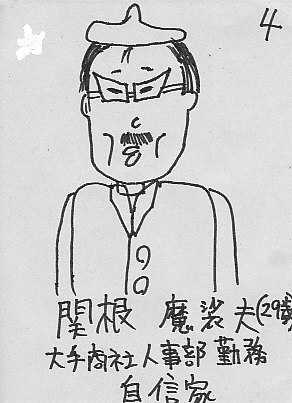 4
関根 魔裟夫(29歳)
大手商社人事部勤務
自信家